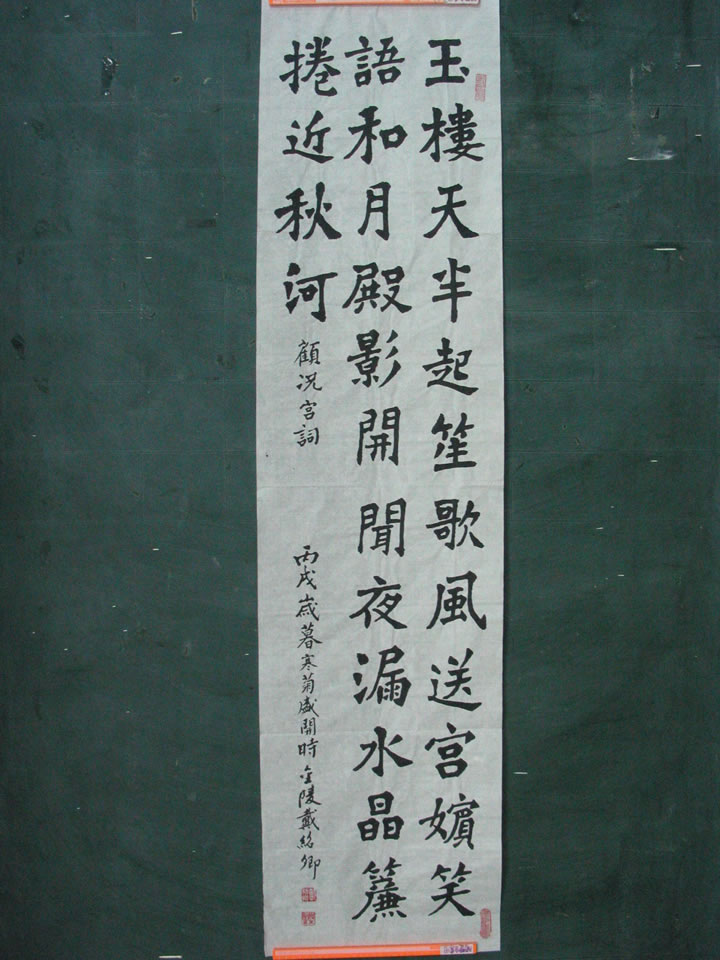 玉樓天半起笙歌風送宮嬪笑
語和月殿影開聞夜漏水晶簾
捲近秋河
顧況宮詞
丙戌歲暮寒菊盛開時金陵戴紹卿